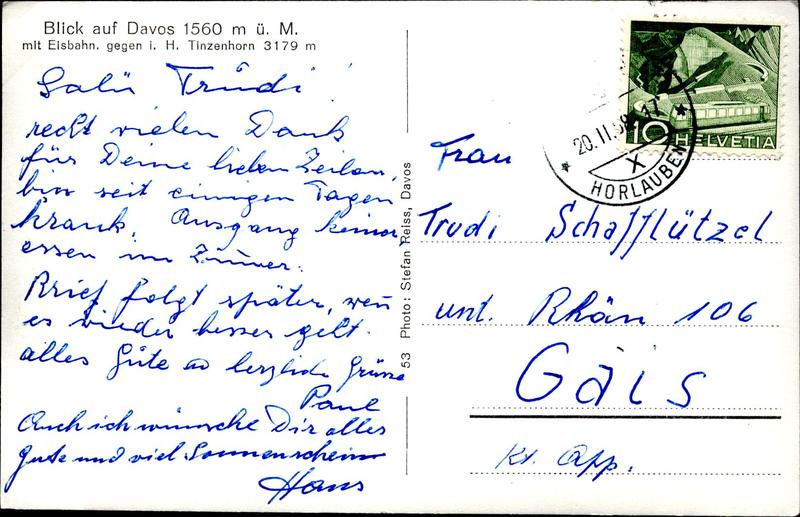 Blick auf Davos 1560 m ü. M.
mit Eisbahn. gegen i. H. Tinzenhorn 3179 m
Salü Trudi!
recht vielen Dank
für Deine lieben Zeilen,
bin seit einigen Tagen
krank. Ausgang keiner,
essen im Zimmer.
Brief folgt später, wen
es wieder besser geht.
alles Gute und herzliche Grüsse
Paul
Auch ich wünsche Dir alles
gute und viel Sonnenschein
Hans
53 Photo: Stefan Reiss, Davos
20.II.58.-17
X
HORLAUBEN
10 HELVETIA
Frau
Trudi Schafflützel
unt. Rhän 106
Gais
Kt. App.